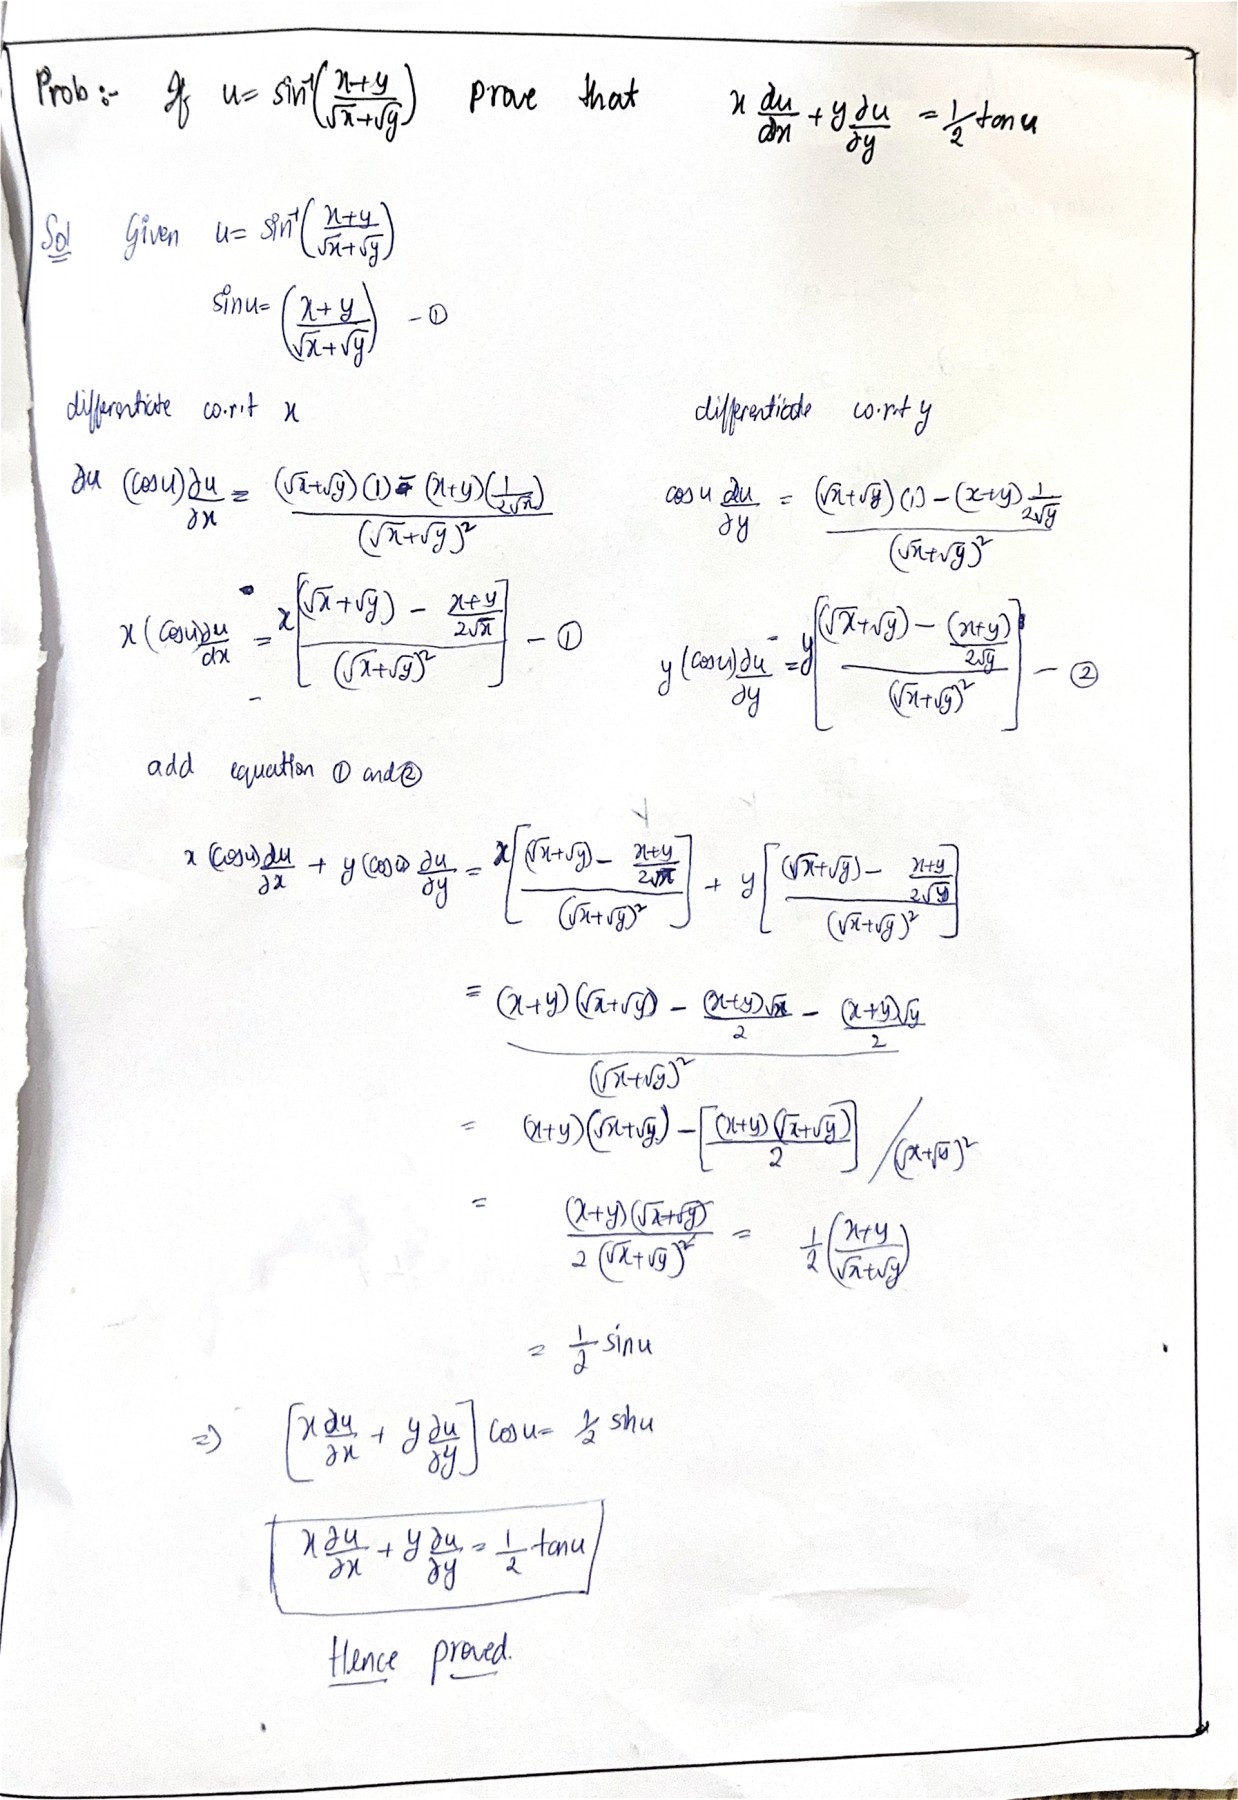 Prob :- If u = sin⁻¹((x+y)/(√x+√y)) prove that x du/dx + y ∂u/∂y = 1/2 tan u
Sol Given u = sin⁻¹((x+y)/(√x+√y))
sin u = ((x+y)/(√x+√y)) - ①
differentiate w.r.t x
differentiate w.r.t y
∂u (cos u) ∂u/∂x = ((√x+√y)(1) - (x+y)(1/2√x))/(√x+√y)²
cos u ∂u/∂y = ((√x+√y)(1) - (x+y) 1/2√y)/(√x+√y)²
x (cos u) ∂u/dx = x[((√x+√y) - (x+y)/2√x)/(√x+√y)²] - ①
y (cos u) ∂u/∂y = y[((√x+√y) - (x+y)/2√y)/(√x+√y)²] - ②
add equation ① and ②
x (cos u) ∂u/∂x + y (cos u) ∂u/∂y = x[((√x+√y) - (x+y)/2√x)/(√x+√y)²] + y[((√x+√y) - (x+y)/2√y)/(√x+√y)²]
= ((x+y)(√x+√y) - (x+y)√x/2 - (x+y)√y/2)/(√x+√y)²
= (x+y)(√x+√y) - [(x+y)(√x+√y)/2] / (√x+√y)²
= (x+y)(√x+√y)/2(√x+√y)² = 1/2 ((x+y)/(√x+√y))
= 1/2 sin u
⇒ [x ∂u/∂x + y ∂u/∂y] cos u = 1/2 sin u
x ∂u/∂x + y ∂u/∂y = 1/2 tan u
Hence proved.